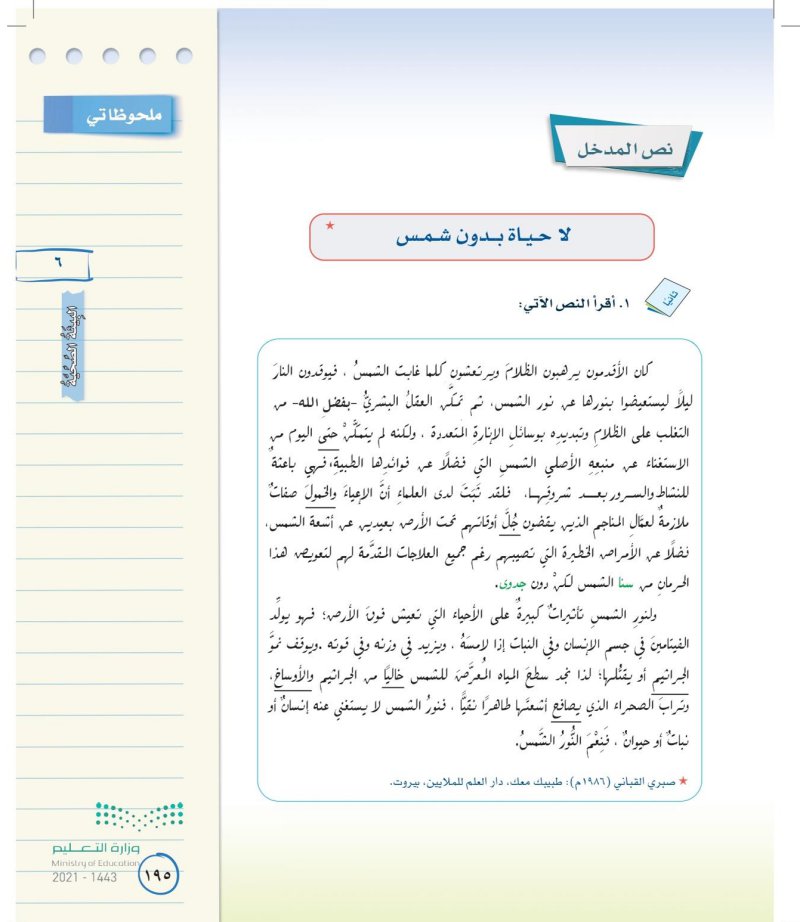 ملحوظاتي
نص المدخل
لا حياة بدون شمس ★
ثانيًا
١. أقرأ النص الآتي:
كان الأقدمون يرهبون الظلامَ ويرتعشون كلما غابت الشمسُ ، فيوقدون النارَ
ليلاً ليستعيضوا بنورها عن نور الشمس، ثم تمكَّن العقلُ البشريُّ -بفضل الله- من
التغلب على الظلامِ وتبديدِه بوسائلِ الإنارةِ المتعددة ، ولكنه لم يتمكَّنْ حتى اليوم من
الاستغناء عن منبعِهِ الأصلي الشمسِ التي فضلًا عن فوائدِها الطبيةِ، فهي باعثةٌ
للنشاط والسرور بعد شروقِها. فلقد ثبَتَ لدى العلماءِ أنَّ الإعياءَ والخمولَ صفاتٌ
ملازمةٌ لعمَّالِ المناجم الذين يقضون جُلَّ أوقاتهم تحت الأرض بعيدين عن أشعة الشمس،
فضلًا عن الأمراضِ الخطيرة التي تصيبهم رغم جميع العلاجات المقدَّمة لهم لتعويض هذا
الحرمانِ من سنا الشمس لكنْ دون جدوى.
ولنور الشمس تأثيراتٌ كبيرةٌ على الأحياء التي تعيش فوق الأرض؛ فهو يولِّد
الفيتامين في جسم الإنسان وفي النبات إذا لامسَهُ ، ويزيد في وزنه وفي قوته .ويوقف نموَّ
الجراثيم أو يقتُلها؛ لذا نجد سطحَ المياه المُعرَّضَ للشمس خاليًا من الجراثيم والأوساخِ،
وترابَ الصحراء الذي يصافح أشعتَها طاهرًا نقيًّا ، فنورُ الشمس لا يستغني عنه إنسانٌ أو
نباتٌ أو حيوانٌ ، فَنِعْمَ النُّورُ الشَّمسُ.
★ صبري القباني (١٩٨٦م): طبيبك معك، دار العلم للملايين، بيروت.
٦
البيئة الصحية
وزارة التعليم
Ministry of Education
2021 - 1443
١٩٥